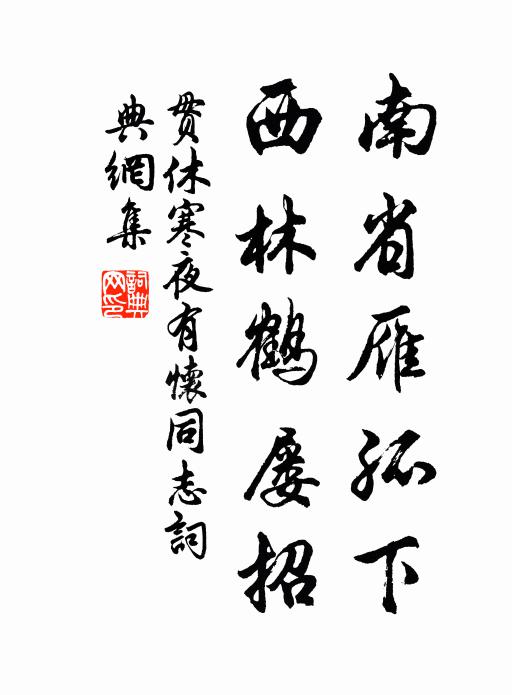 南省雁孤下
西林鶴屡招
貫休寒夜有懷同志詞
典網集
詞典
网印